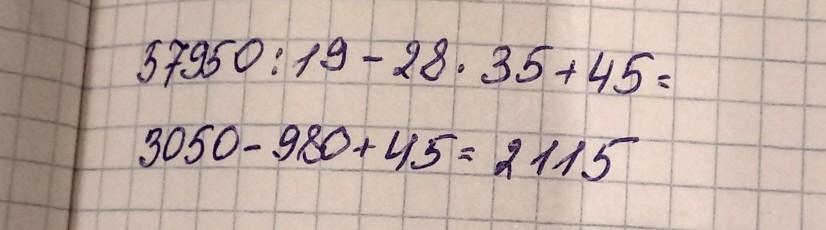 57950:19-28·35+45=
3050-980+45=2115